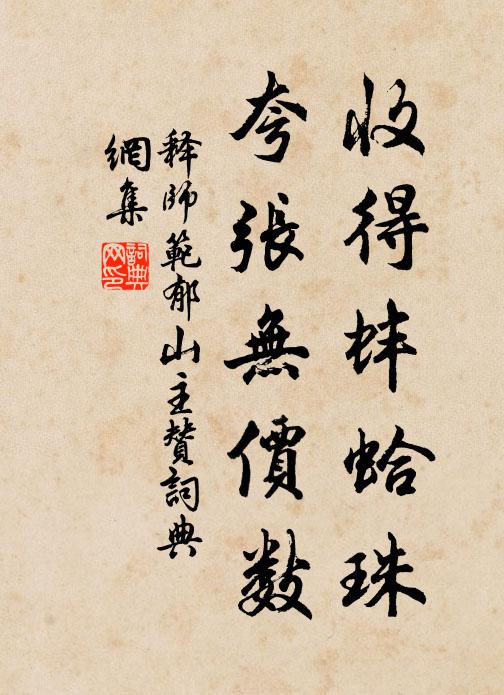 收得蚌蛤珠
夸張無價数
释師範郁山主贊詞典
網集
詞典
网印